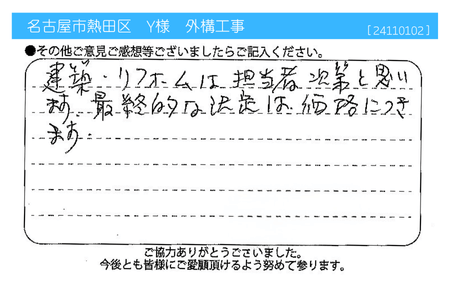 名古屋市熱田区 Y様 外構工事 [24110102]
●その他ご意見ご感想等ございましたらご記入ください。
建築・リフォームは担当者次第と思い
ます。最終的な決定は価格につき
ます.
ご協力ありがとうございました。
今後とも皆様にご愛顧頂けるよう努めて参ります。